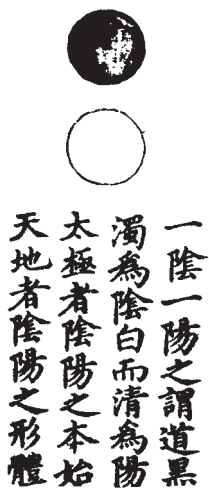 一陰一陽之謂道黑
濁爲陰白而清爲陽
太極者陰陽之本始
天地者陰陽之形體